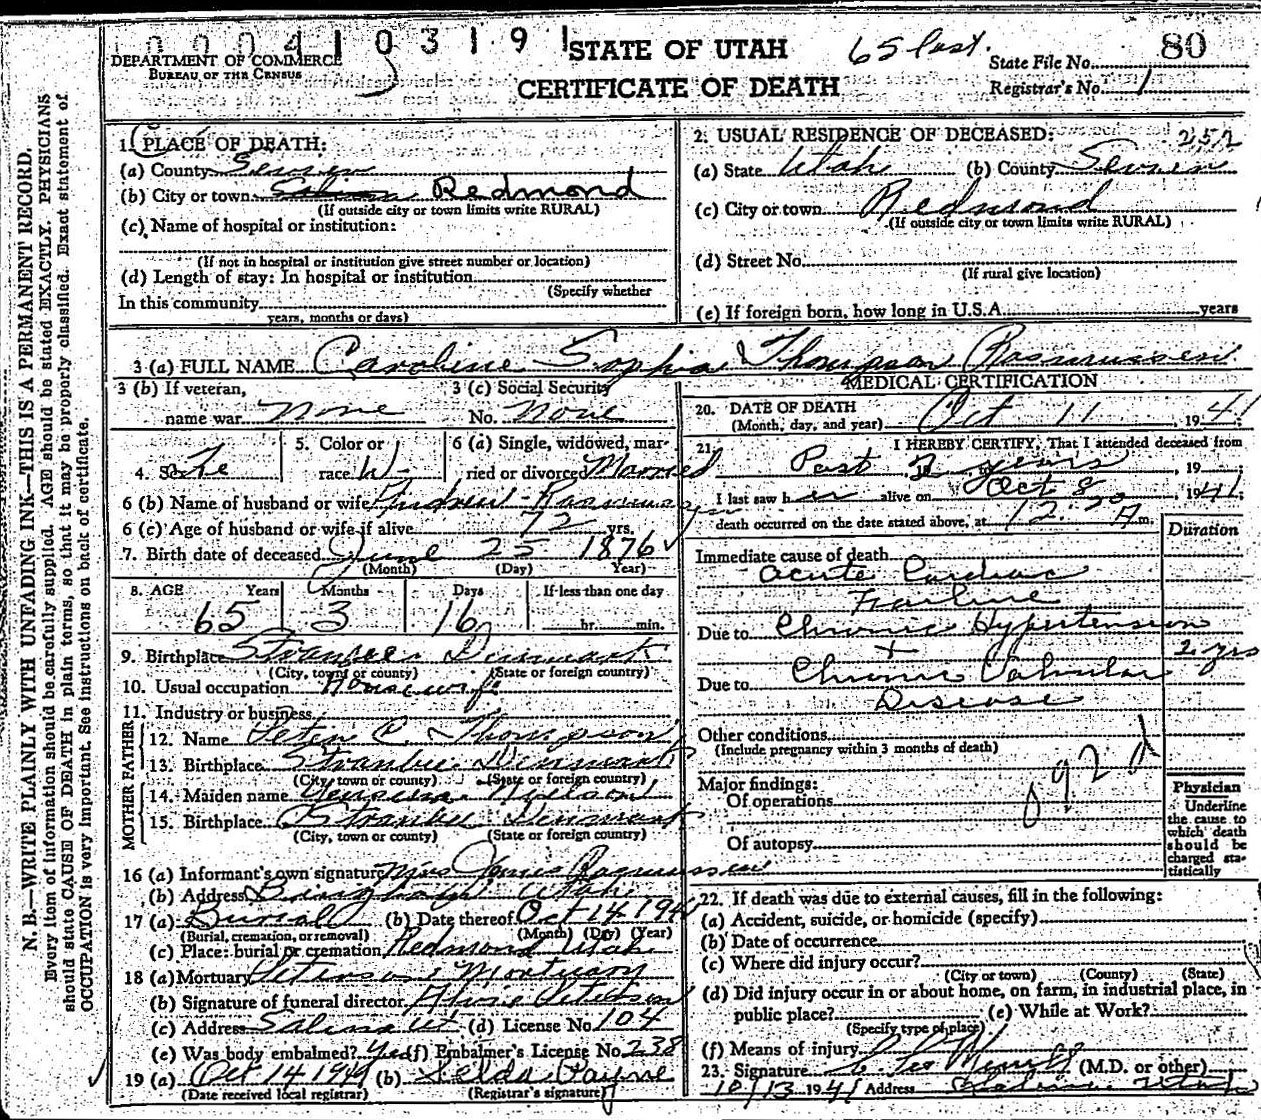 000410319
DEPARTMENT OF COMMERCE
BUREAU OF THE CENSUS
STATE OF UTAH
CERTIFICATE OF DEATH
65 last.
State File No. 80
Registrar's No. 1
N. B.—WRITE PLAINLY WITH UNFADING INK—THIS IS A PERMANENT RECORD.
Every item of information should be carefully supplied. AGE should be stated EXACTLY. PHYSICIANS
should state CAUSE OF DEATH in plain terms, so that it may be properly classified. Exact statement of
OCCUPATION is very important. See instructions on back of certificate.
1. PLACE OF DEATH:
(a) County Sevier
(b) City or town Salina Redmond
(If outside city or town limits write RURAL)
(c) Name of hospital or institution:
(If not in hospital or institution give street number or location)
(d) Length of stay: In hospital or institution
(Specify whether
In this community
years, months or days)
2. USUAL RESIDENCE OF DECEASED: 252
(a) State Utah (b) County Sevier
(c) City or town Redmond
(If outside city or town limits write RURAL)
(d) Street No.
(If rural give location)
(e) If foreign born, how long in U.S.A. years
3 (a) FULL NAME Caroline Sophia Thompson Rasmussen
3 (b) If veteran,
name war None
3 (c) Social Security
No. None
4. Sex Fe
5. Color or
race W-
6 (a) Single, widowed, mar-
ried or divorced Married
6 (b) Name of husband or wife Andrew Rasmussen
6 (c) Age of husband or wife if alive 72 yrs.
7. Birth date of deceased June 25 1876
(Month) (Day) Year)
8. AGE Years Months Days If less than one day
65 3 16 hr. min.
9. Birthplace Denmark
(City, town or county) (State or foreign country)
10. Usual occupation Housewife
11. Industry or business
FATHER
12. Name Peter C. Thompson
13. Birthplace Denmark
(City, town or county) (State or foreign country)
MOTHER
14. Maiden name Nielson
15. Birthplace Denmark
(City, town or county) (State or foreign country)
16 (a) Informant's own signature Mrs Rasmussen
(b) Address Bingham Utah
17 (a) Burial (b) Date thereof Oct 14 1941
(Burial, cremation, or removal) (Month) (Day) (Year)
(c) Place: burial or cremation Redmond Utah
18 (a) Mortuary Peterson Mortuary
(b) Signature of funeral director Peterson
(c) Address Salina Ut (d) License No. 104
(e) Was body embalmed? Yes (f) Embalmer's License No. 238
19 (a) Oct 14 1941 (b) Zelda Payne
(Date received local registrar) (Registrar's signature)
MEDICAL CERTIFICATION
20. DATE OF DEATH
(Month, day, and year) Oct 11, 1941
21. I HEREBY CERTIFY, That I attended deceased from
Past 2 years, 19
I last saw her alive on Oct 8, 1941;
death occurred on the date stated above, at 12:30 A m.
Duration
Immediate cause of death
Acute Cardiac
Failure
Due to Chronic Hypertension
+ 2 yrs
Due to Chronic Valvular
Disease
Other conditions
(Include pregnancy within 3 months of death)
092 d
Major findings:
Of operations
Of autopsy
Physician
Underline
the cause to
which death
should be
charged sta-
tistically
22. If death was due to external causes, fill in the following:
(a) Accident, suicide, or homicide (specify)
(b) Date of occurrence
(c) Where did injury occur?
(City or town) (County) (State)
(d) Did injury occur in or about home, on farm, in industrial place, in
public place? (e) While at Work?
(Specify type of place)
(f) Means of injury
23. Signature (M.D. or other)
10/13 1941 Address Salina Utah